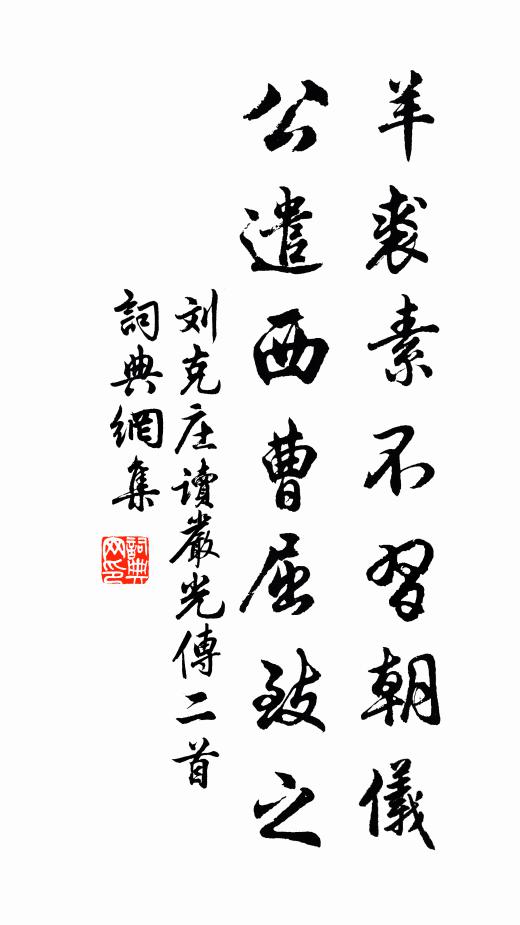 羊裘素不習朝儀
公遣西曹屈致之
刘克庄讀嚴光傳二首
詞典網集
詞典
网印